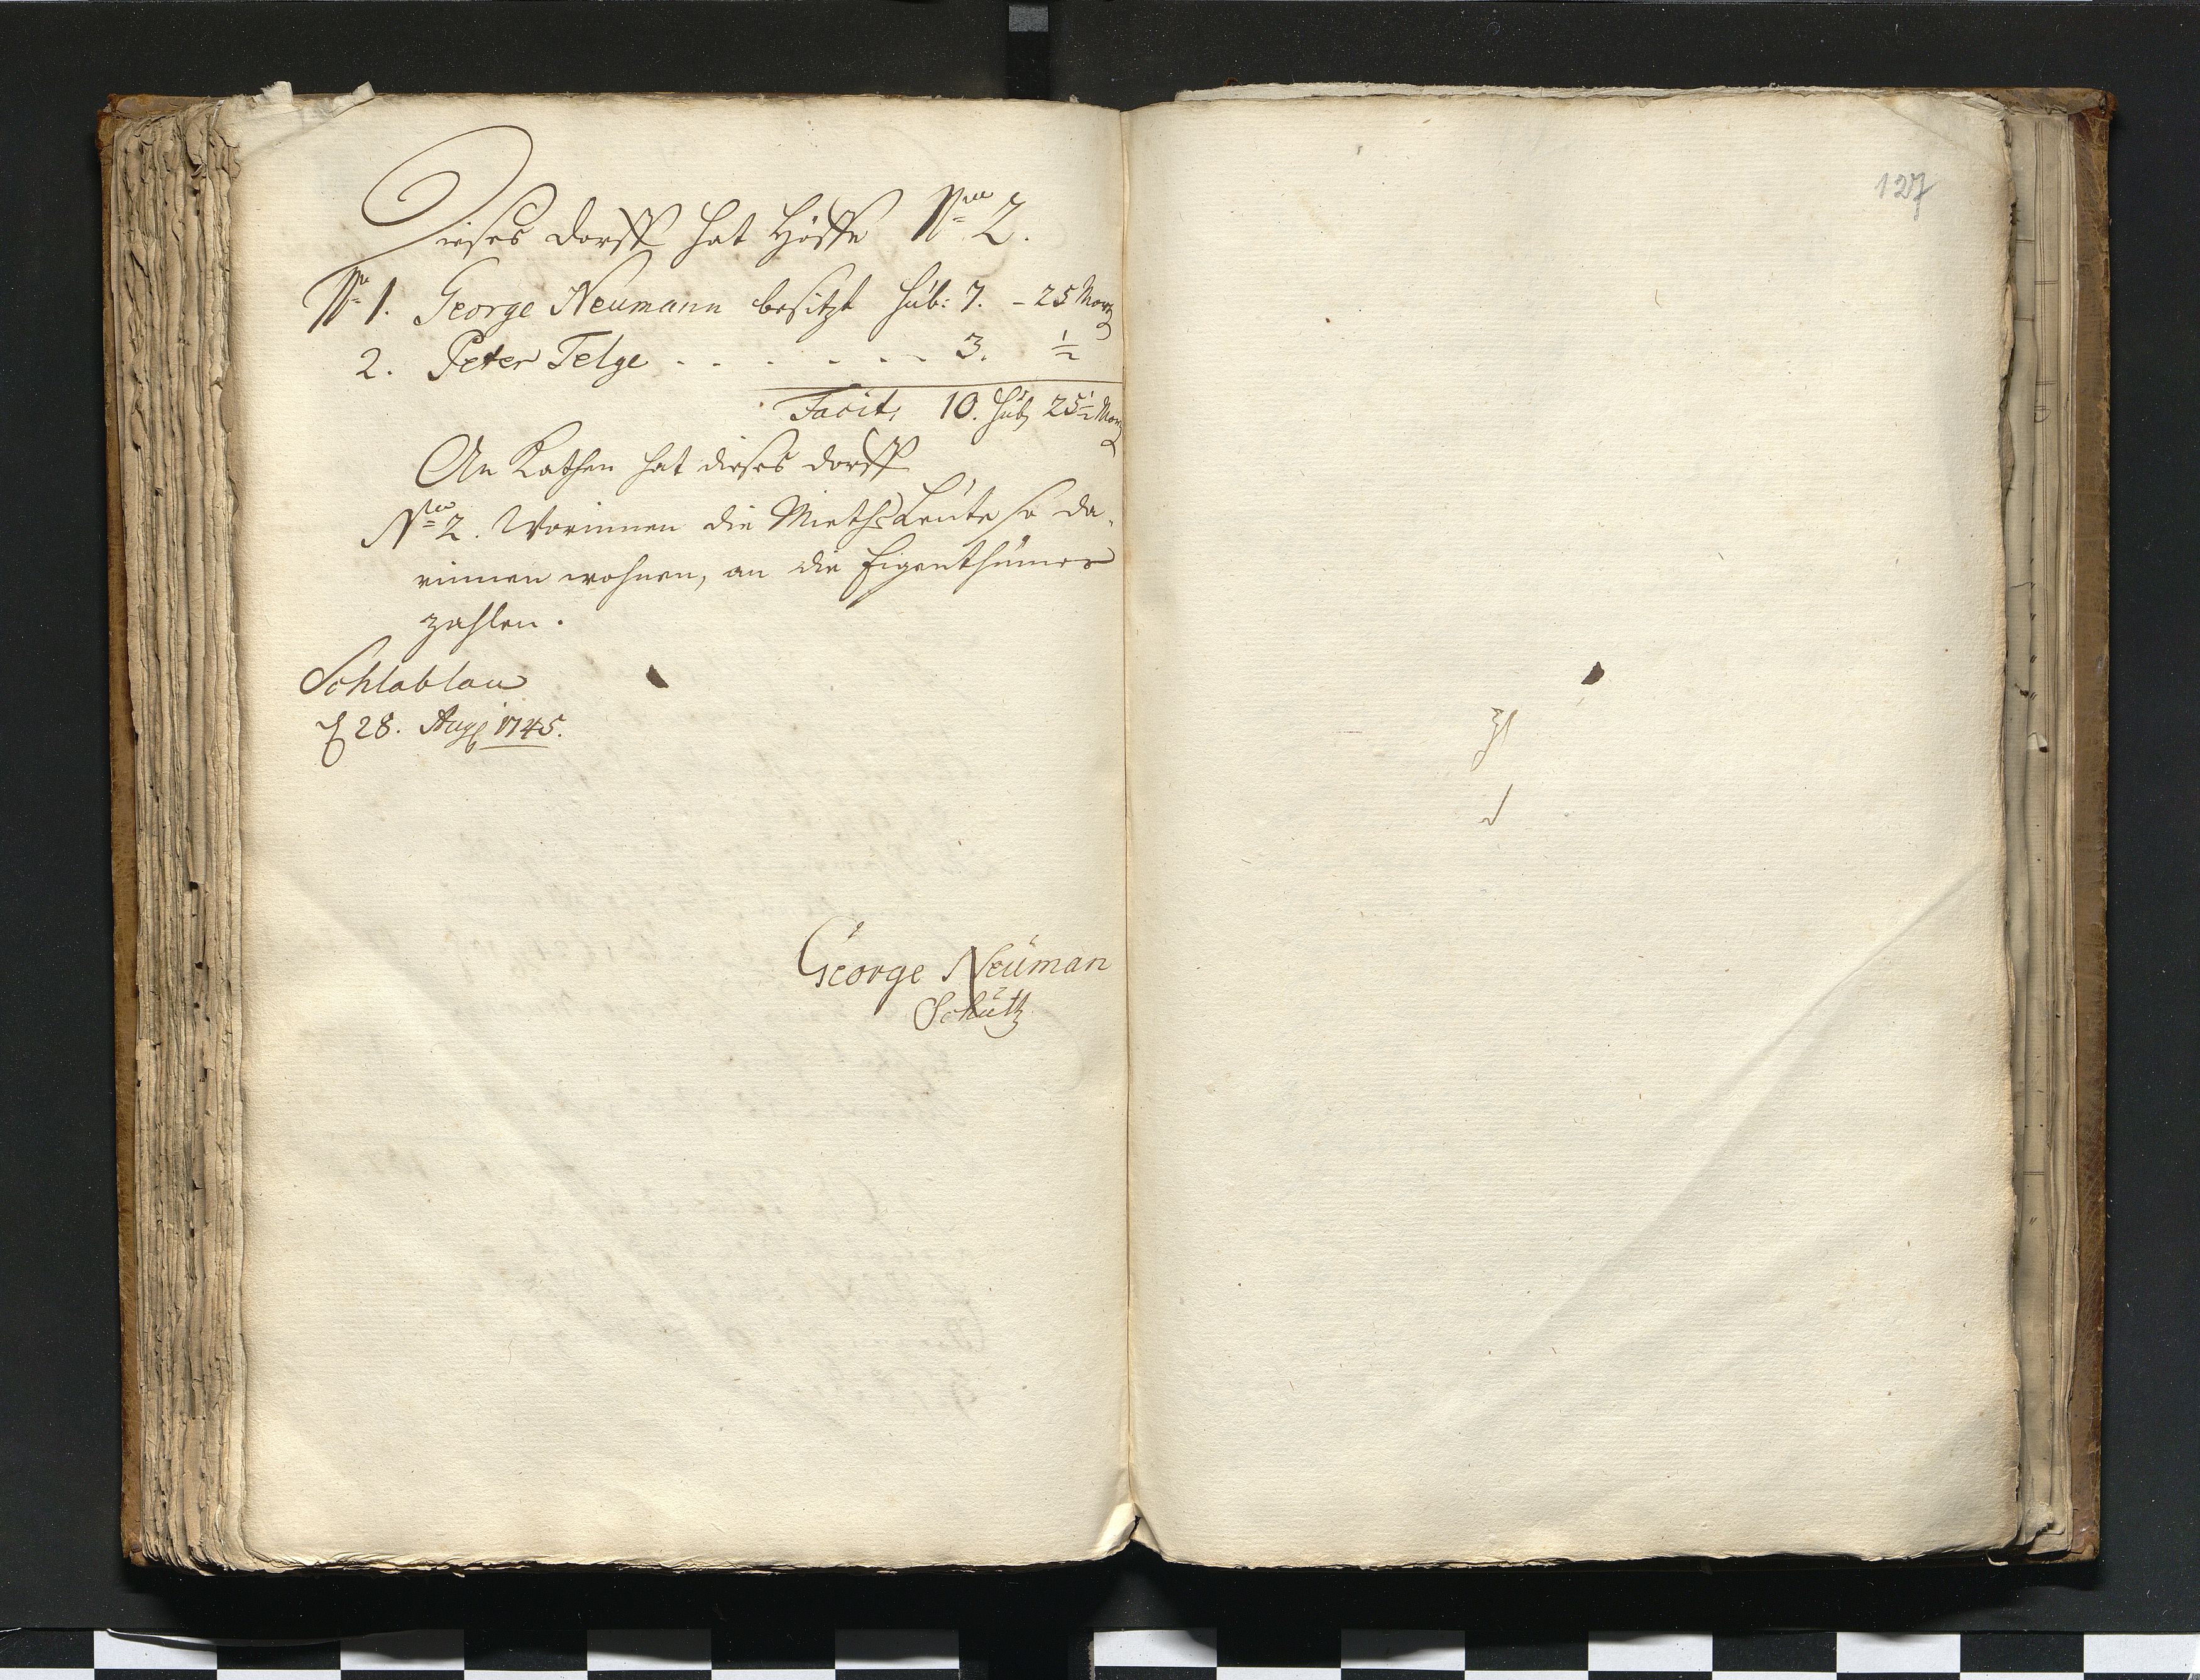 Dieses dorff hat Höffe No 2.
No 1. George Neumann besitzt Hub: 7. - 25 Morg
2. Peter Telge - - - - - - 3. ½
Facit, 10. Hub 25½ Morg
An Kathen hat dieses dorff
No 2. Worinnen die Mieths Leüte so da-
rinnen wohnen, an die Eigenthümer
zahlen.
Schlablau
d 28. Aug 1745.
George Neüman
Schultz
127